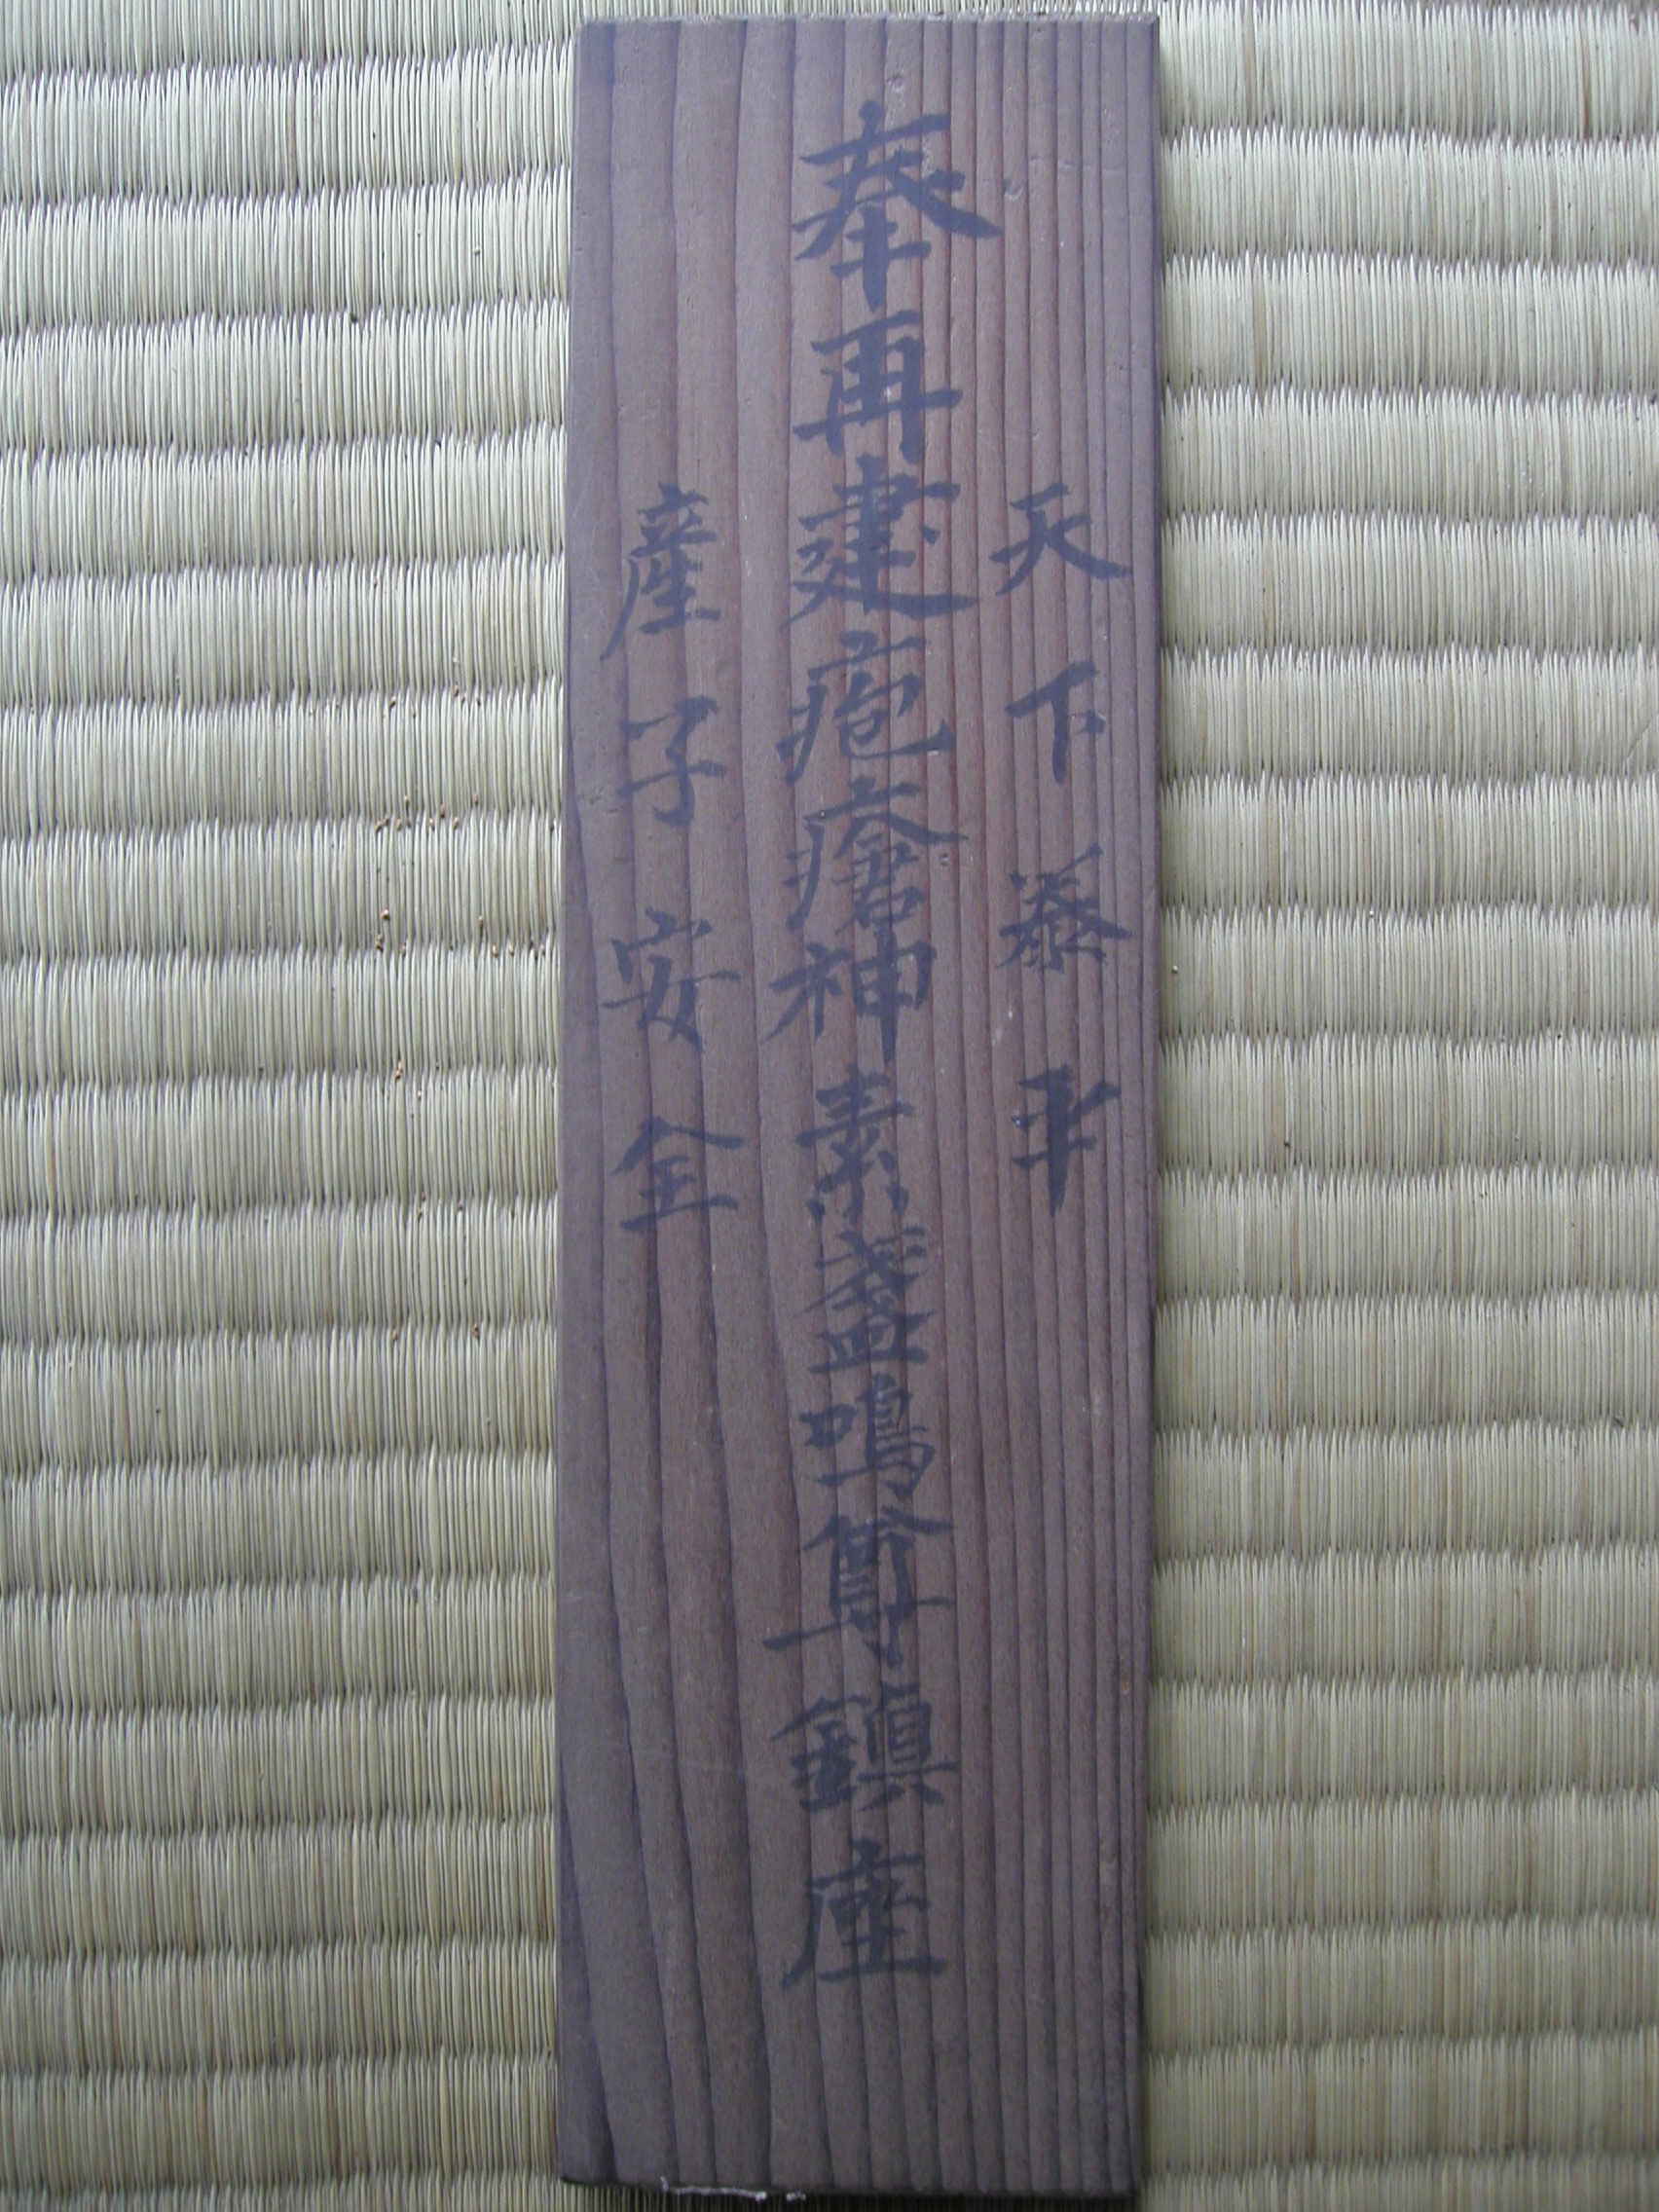 天下泰平
奉再建疱瘡神素盞嗚尊鎮座
産子安全